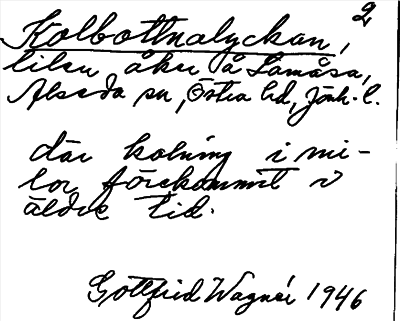 2
Kolbottnalyckan,
liten åker å Lamåsa,
Alseda sn, Östra hd, Jönk. l.
där kolning i mi-
lor förekommit i
äldre tid.
Gottfrid Wagnér 1946